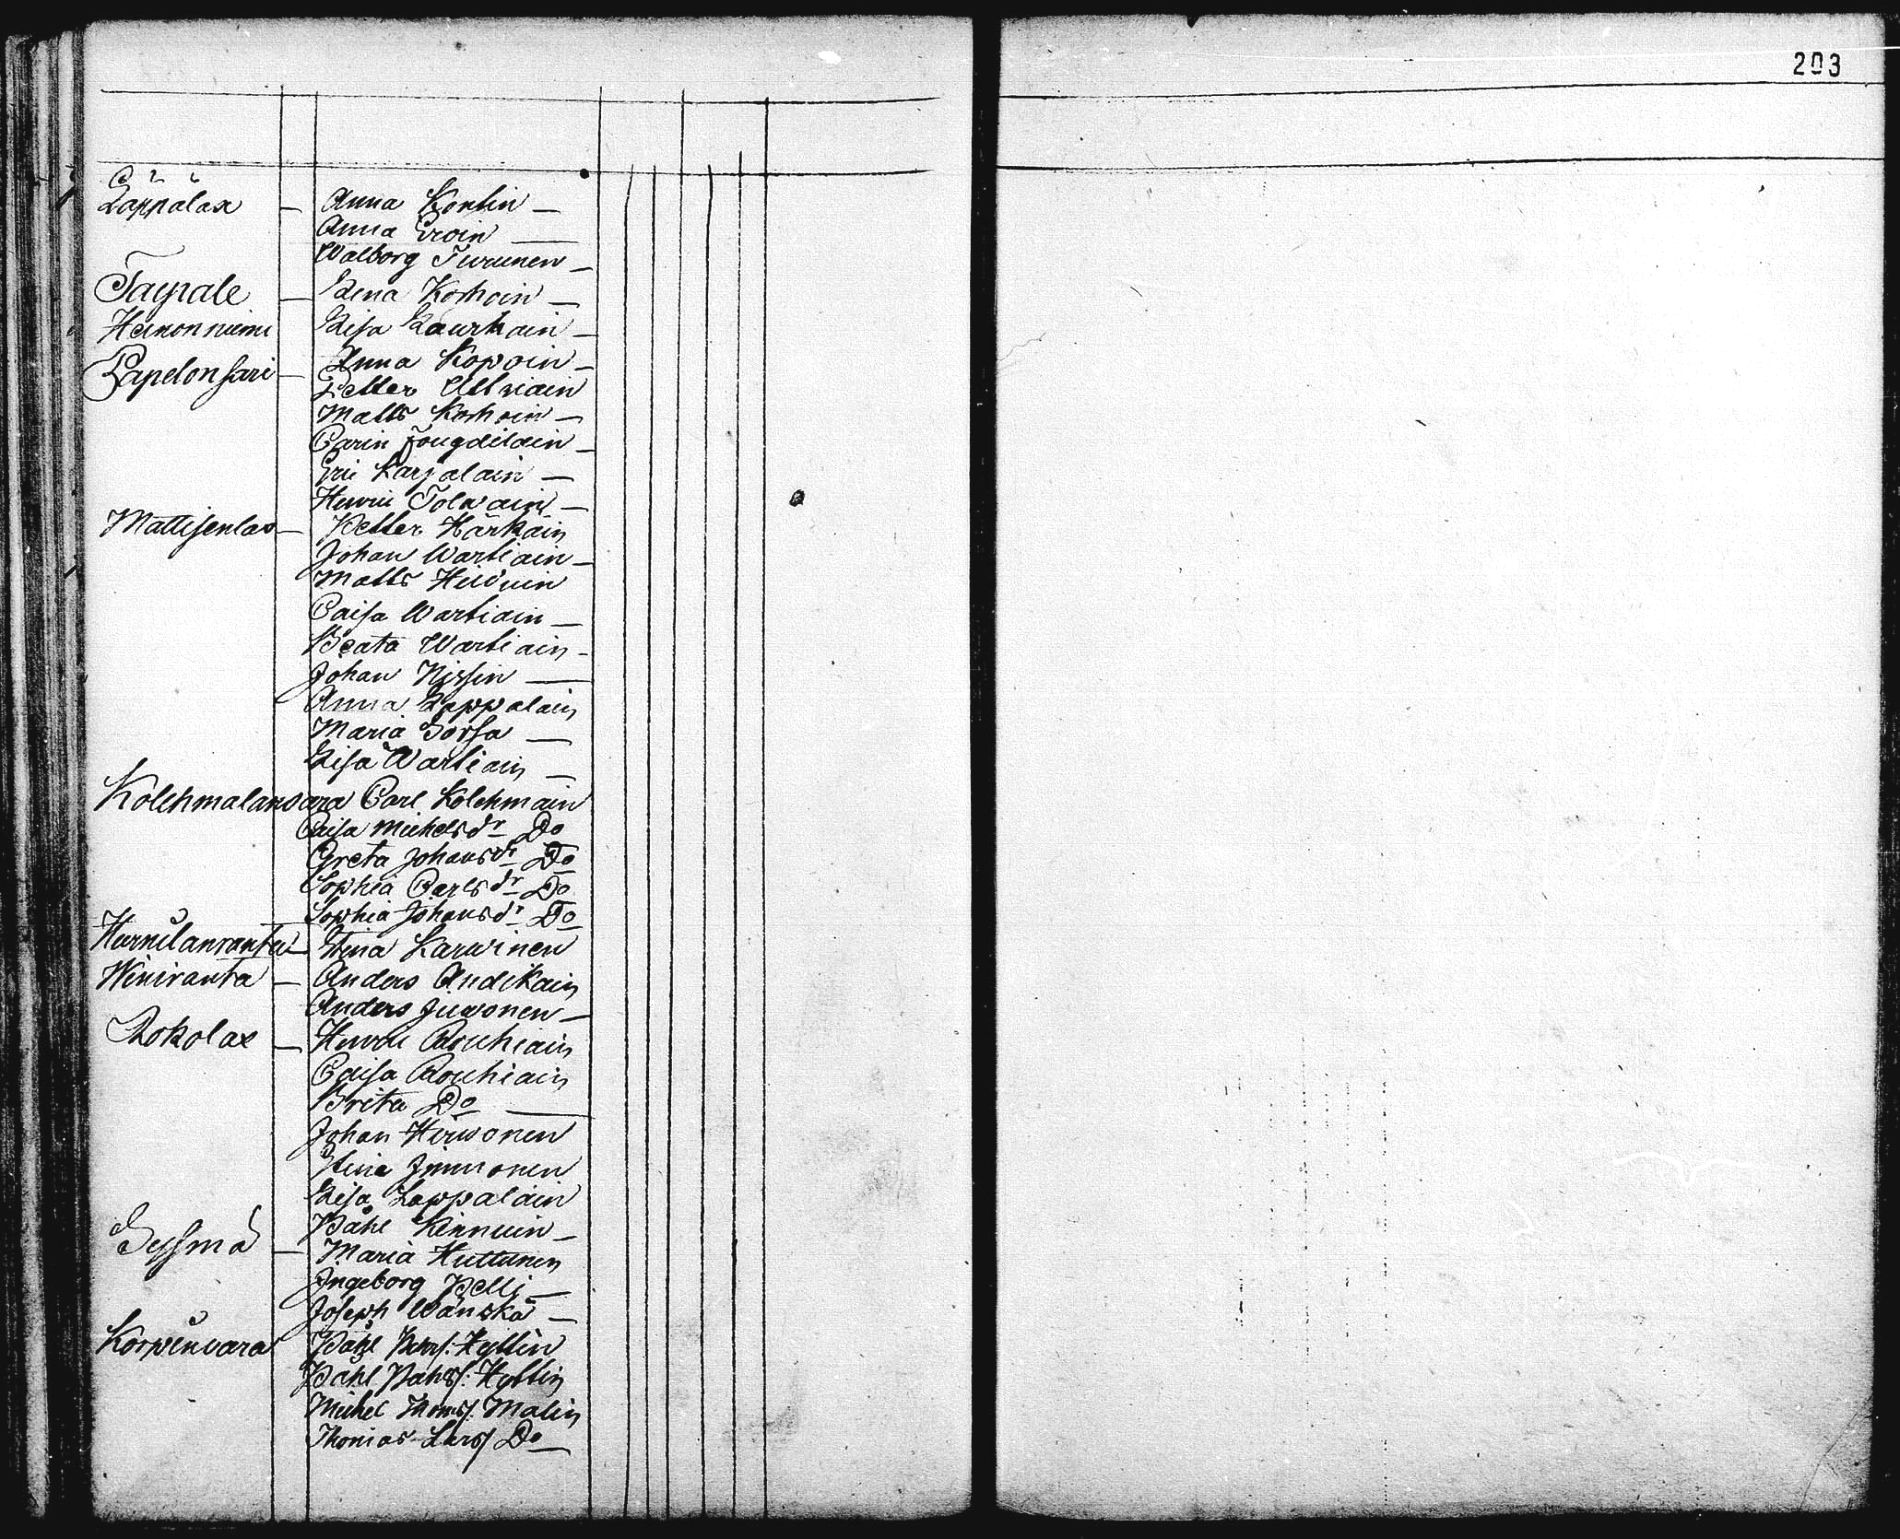 203
Läppälax — Anna Kontin —
Anna Eroin —
Walborg Turunen —
Taipale — Lena Korhoin —
Heinonniemi Lisa Laurkain —
Papelonsari — Anna Kopoin —
Petter Ultriain
Matts Korhoin —
Carin Fougdilain —
Eric Karjalain —
Henric Tolwain —
Mattisenlax — Petter Härkäin
Johan Wartiain —
Matts Hirwin
Caisa Wartiain —
Beata Wartiain —
Johan Nissin —
Anna Lappalain
Maria Sorsa —
Lisa Wartiain —
Kolehmalanwara Carl Kolehmain
Caisa Michelsdr Do
Greta Johansdr Do
Sophia Carlsdr Do
Sophia Johansdr Do
Hurnilanranta — Stina Karwinen
Winiranta — Anders Andikain
Anders Juwonen —
Rokolax — Henric Rouhiain
Caisa Rouhiain
Brita Do —
Johan Hirwonen
Stina Immonen
Lisa Lappalain
Påhl Kinnuin —
Sysmä — Maria Huttunen
Ingeborg Pelli —
Joseph Wänskä —
Korpiwara Påhl Pehrs. Hyttin
Påhl Påhls. Hyttin
Michel Thoms. Malin
Thomas Larss Do —